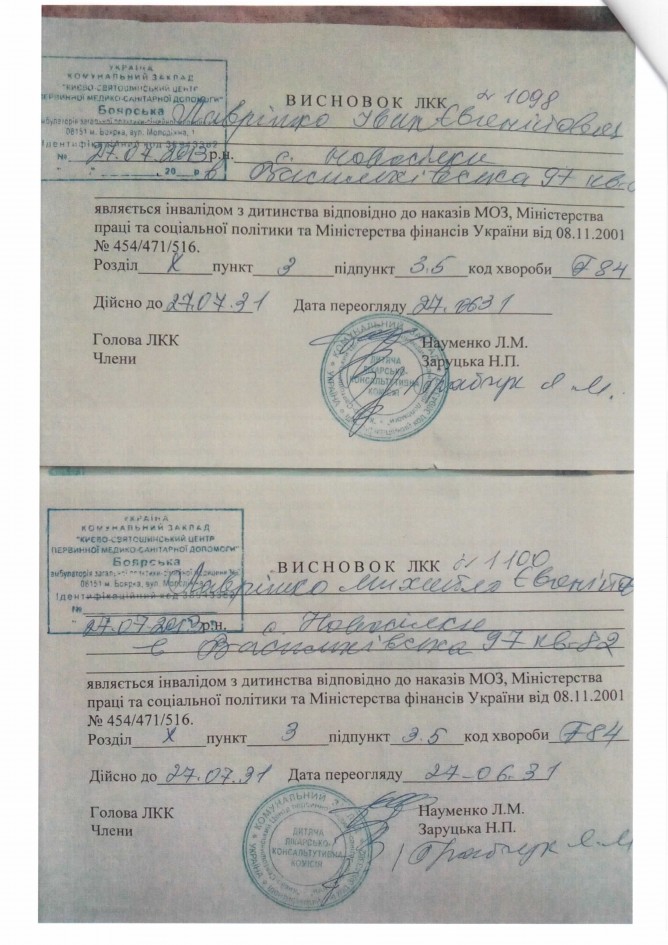 УКРАЇНА
КОМУНАЛЬНИЙ ЗАКЛАД
"КИЄВО-СВЯТОШИНСЬКИЙ ЦЕНТР
ПЕРВИННОЇ МЕДИКО-САНІТАРНОЇ ДОПОМОГИ"
Боярська
08151 м. Боярка, вул. Молодіжна, 1
Ідентифікаційний код
№
ВИСНОВОК ЛКК № 1098
Лаврінко Іван Євгенійович
27.07.2013 р.н. с. Новосілки
в Васильківська 97 кв.
являється інвалідом з дитинства відповідно до наказів МОЗ, Міністерства
праці та соціальної політики та Міністерства фінансів України від 08.11.2001
№ 454/471/516.
Розділ X пункт 3 підпункт 3.5 код хвороби F84
Дійсно до 27.07.31 Дата переогляду 27.0631
Голова ЛКК Науменко Л.М.
Члени Заруцька Н.П.
КОМУНАЛЬНИЙ
ДИТЯЧА
ЛІКАРСЬКО-
КОНСУЛЬТАТИВНА
КОМІСІЯ
УКРАЇНА
КОМУНАЛЬНИЙ ЗАКЛАД
"КИЄВО-СВЯТОШИНСЬКИЙ ЦЕНТР
ПЕРВИННОЇ МЕДИКО-САНІТАРНОЇ ДОПОМОГИ"
Боярська
08151 м. Боярка, вул.
Ідентифікаційний код
№
ВИСНОВОК ЛКК № 1100
Лаврінко Михайло
27.07.2013 р.н. с. Новосілки
в Васильківська 97 кв-82
являється інвалідом з дитинства відповідно до наказів МОЗ, Міністерства
праці та соціальної політики та Міністерства фінансів України від 08.11.2001
№ 454/471/516.
Розділ X пункт 3 підпункт 3.5 код хвороби F84
Дійсно до 27.07.31 Дата переогляду 27-06.31
Голова ЛКК Науменко Л.М.
Члени Заруцька Н.П.
КОМУНАЛЬНИЙ
ДИТЯЧА
ЛІКАРСЬКО-
КОНСУЛЬТАТИВНА
КОМІСІЯ